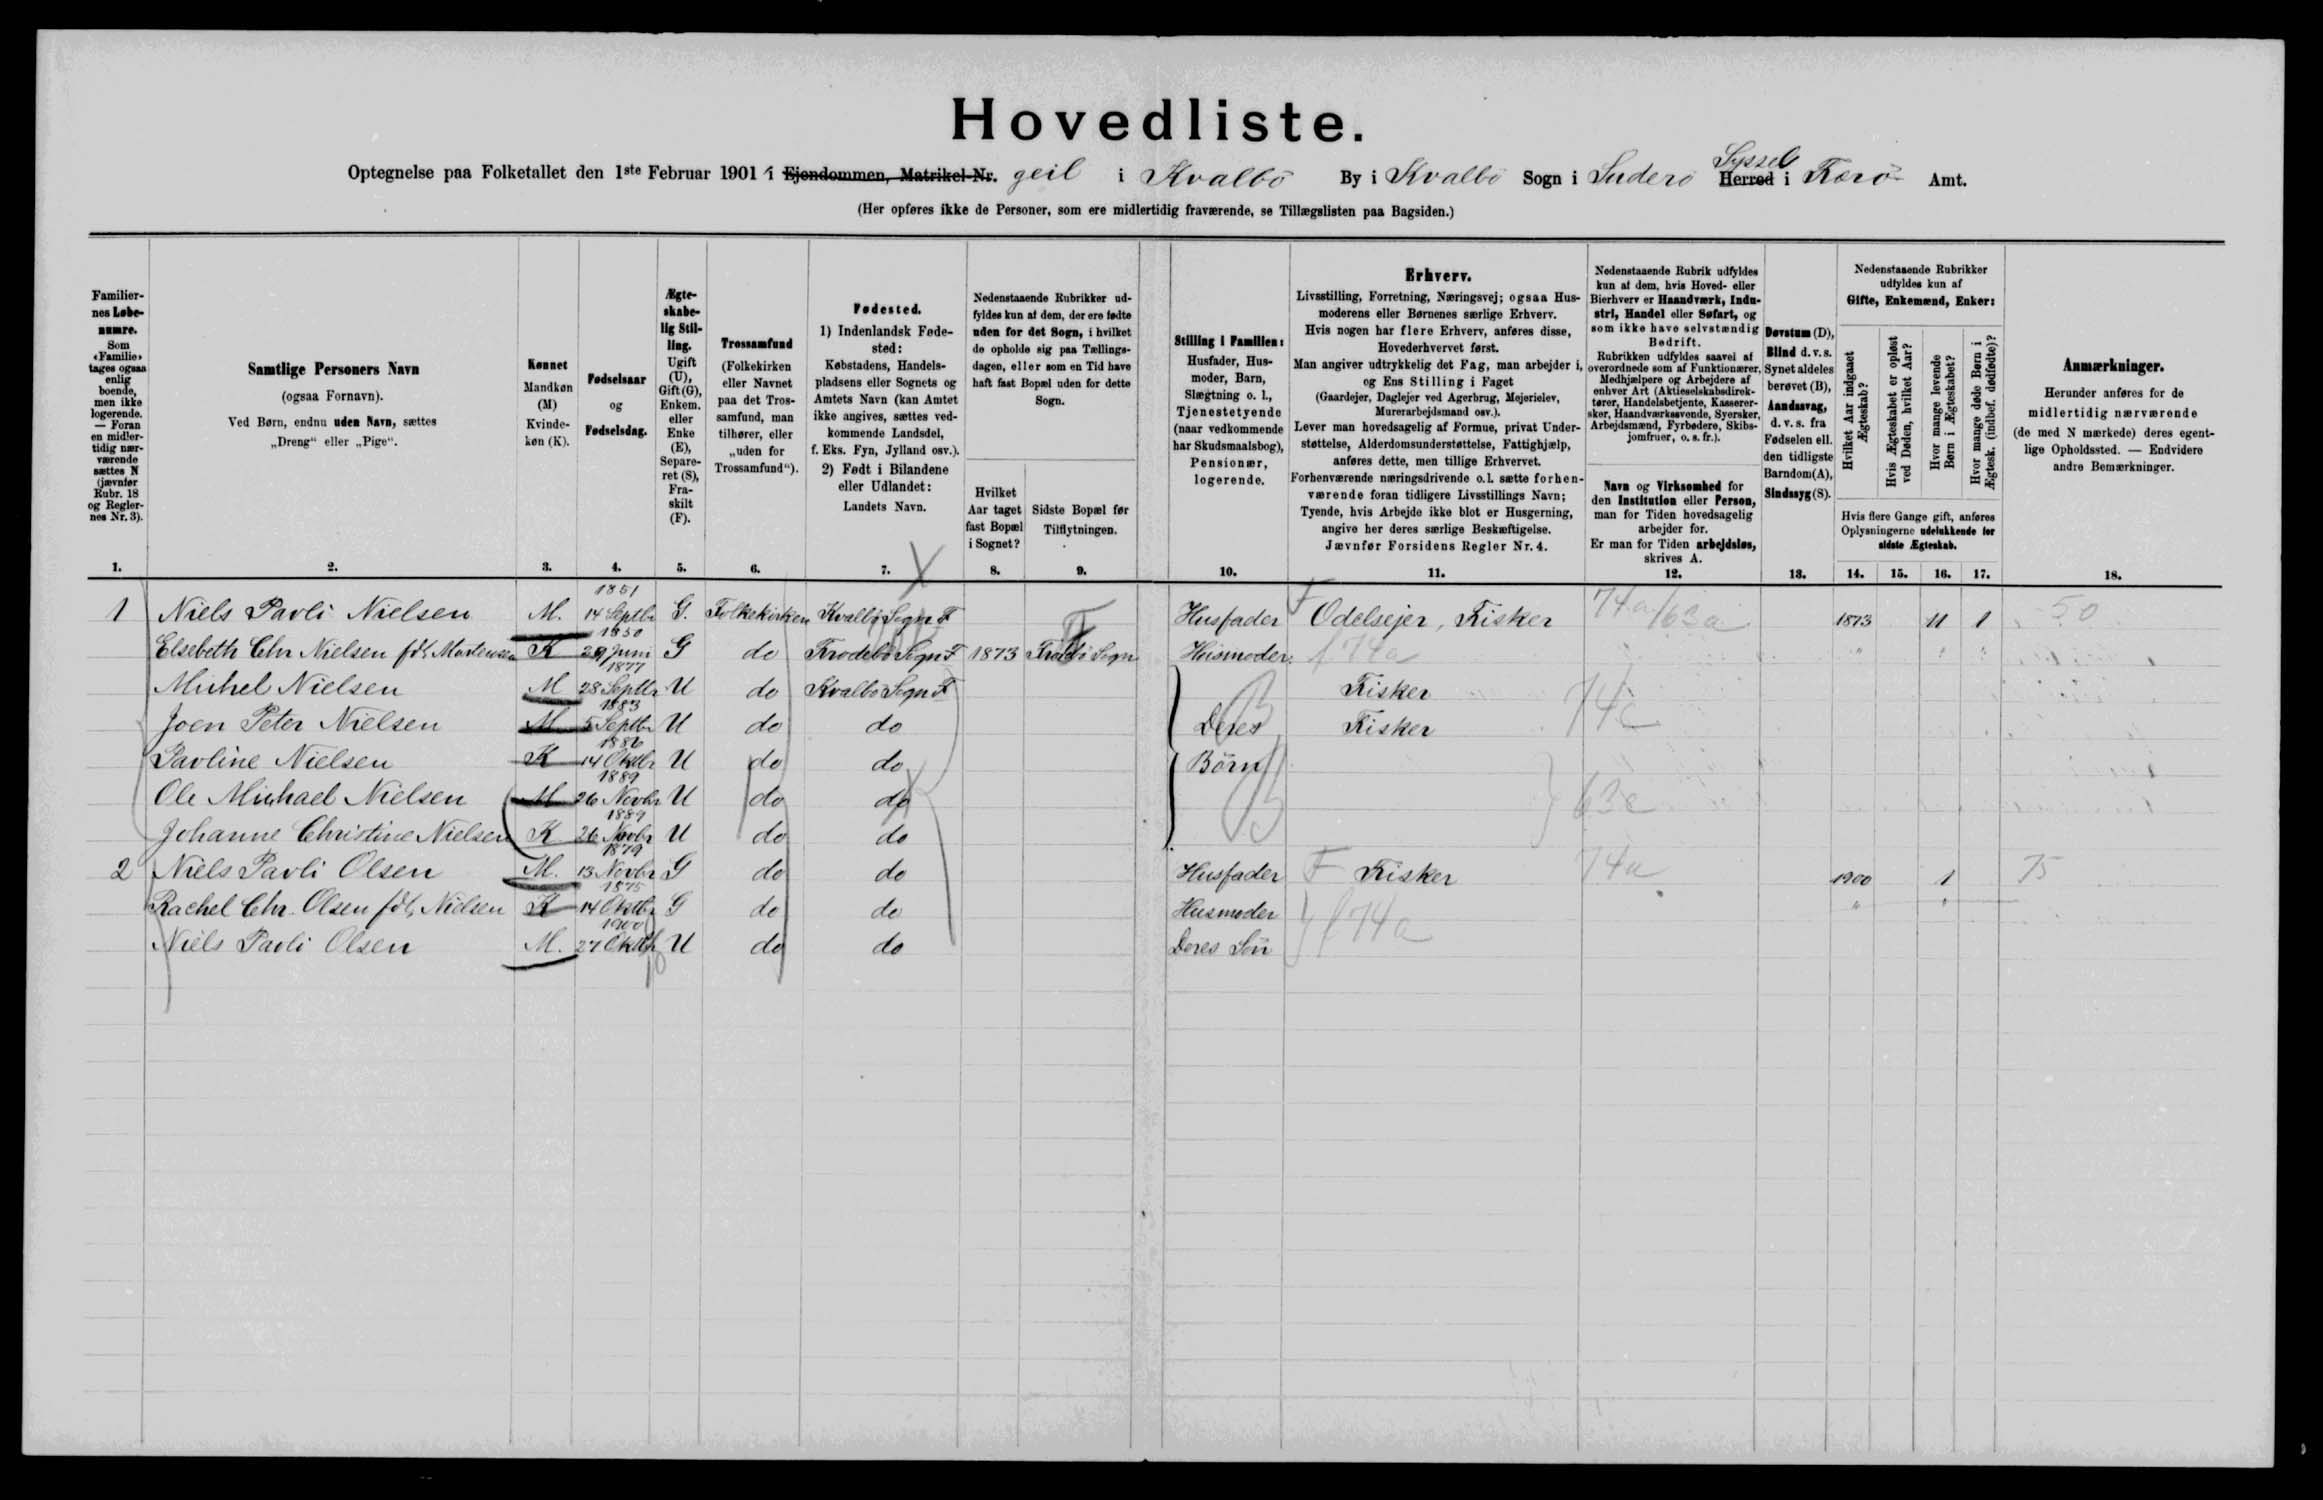 Hovedliste.
Optegnelse paa Folketallet den 1ste Februar 1901 i Ejendommen, Matrikel-Nr. geil i Kvalbö By i Kvalbö Sogn i Suderö Herred Syssel i Færö Amt.
(Her opføres ikke de Personer, som ere midlertidig fraværende, se Tillægslisten paa Bagsiden.)
Familiernes Løbenumre.
Som «Familie» tages ogsaa enlig boende, men ikke logerende. — Foran en midlertidig nærværende sættes N (jævnfør Rubr. 18 og Reglernes Nr. 3).
Samtlige Personers Navn
(ogsaa Fornavn).
Ved Børn, endnu uden Navn, sættes
„Dreng“ eller „Pige“.
Kønnet
Mandkøn (M)
Kvindekøn (K).
Fødselsaar
og
Fødselsdag.
Ægteskabelig Stilling.
Ugift (U), Gift (G), Enkem. eller Enke (E), Separeret (S), Fraskilt (F).
Trossamfund
(Folkekirken eller Navnet paa det Trossamfund, man tilhører, eller „uden for Trossamfund“).
Fødested.
1) Indenlandsk Fødested:
Købstadens, Handelspladsens eller Sognets og Amtets Navn (kan Amtet ikke angives, sættes vedkommende Landsdel, f. Eks. Fyn, Jylland osv.).
2) Født i Bilandene eller Udlandet:
Landets Navn.
Nedenstaaende Rubrikker udfyldes kun af dem, der ere fødte uden for det Sogn, i hvilket de opholde sig paa Tællingsdagen, eller som en Tid have haft fast Bopæl uden for dette Sogn.
Hvilket Aar taget fast Bopæl i Sognet?
Sidste Bopæl før Tilflytningen.
Stilling i Familien:
Husfader, Husmoder, Barn, Slægtning o. l., Tjenestetyende (naar vedkommende har Skudsmaalsbog), Pensionær, logerende.
Erhverv.
Livsstilling, Forretning, Næringsvej; ogsaa Husmoderens eller Børnenes særlige Erhverv.
Hvis nogen har flere Erhverv, anføres disse, Hovederhvervet først.
Man angiver udtrykkelig det Fag, man arbejder i, og Ens Stilling i Faget
(Gaardejer, Daglejer ved Agerbrug, Mejerielev, Murerarbejdsmand osv.).
Lever man hovedsagelig af Formue, privat Understøttelse, Alderdomsunderstøttelse, Fattighjælp, anføres dette, men tillige Erhvervet.
Forhenværende næringsdrivende o.l. sætte forhenværende foran tidligere Livsstillings Navn;
Tyende, hvis Arbejde ikke blot er Husgerning, angive her deres særlige Beskæftigelse.
Jævnfør Forsidens Regler Nr. 4.
Nedenstaaende Rubrik udfyldes kun af dem, hvis Hoved- eller Bierhverv er Haandværk, Industri, Handel eller Søfart, og som ikke have selvstændig Bedrift.
Rubrikken udfyldes saavel af overordnede som af Funktionærer, Medhjælpere og Arbejdere af enhver Art (Aktieselskabsdirektører, Handelsbetjente, Kasserersker, Haandværkssvende, Syersker, Arbejdsmænd, Fyrbødere, Skibsjomfruer, o. s. fr.).
Navn og Virksomhed for den Institution eller Person, man for Tiden hovedsagelig arbejder for.
Er man for Tiden arbejdsløs, skrives A.
Døvstum (D),
Blind d. v. s. Synet aldeles berøvet (B),
Aandssvag, d. v. s. fra Fødselen ell. den tidligste Barndom (A),
Sindssyg (S).
Nedenstaaende Rubrikker udfyldes kun af
Gifte, Enkemænd, Enker:
Hvilket Aar indgaaet Ægteskab?
Hvis Ægteskabet er opløst ved Døden, hvilket Aar?
Hvor mange levende Børn i Ægteskabet?
Hvor mange døde Børn i Ægtesk. (indbef. dødfødte)?
Hvis flere Gange gift, anføres Oplysningerne udelukkende for sidste Ægteskab.
Anmærkninger.
Herunder anføres for de midlertidig nærværende (de med N mærkede) deres egentlige Opholdssted. — Endvidere andre Bemærkninger.
1. 2. 3. 4. 5. 6. 7. 8. 9. 10. 11. 12. 13. 14. 15. 16. 17. 18.
1 Niels Pavli Nielsen M. 1851 14 Septbr G. Folkekirken Kvalbö Sogn F Husfader F Odelsejer, Fisker 74a/63a 1873 11 1 50
Elsebeth Chr Nielsen fdt. Mortensen K 1850 29 Juni G do Frodebö Sogn F 1873 Frodebö Sogn Husmoder f 74a " " "
Michel Nielsen M 1877 28 Septbr U do Kvalbö Sogn F Fisker
Joen Peter Nielsen M 1883 5 Septbr U do do Deres Fisker 74c
Pavline Nielsen K 1886 14 Oktbr U do do Börn
Ole Michael Nielsen M 1889 26 Novbr U do do 63c
Johanne Christine Nielsen K 1889 26 Novbr U do do
2 Niels Pavli Olsen M. 1879 13 Novbr G do do Husfader F Fisker 74a 1900 1 75
Rachel Chr. Olsen fdt. Nielsen K 1875 14 Oktbr G do do Husmoder " "
Niels Pavli Olsen M. 1900 27 Oktbr U do do Deres Sön f 74a